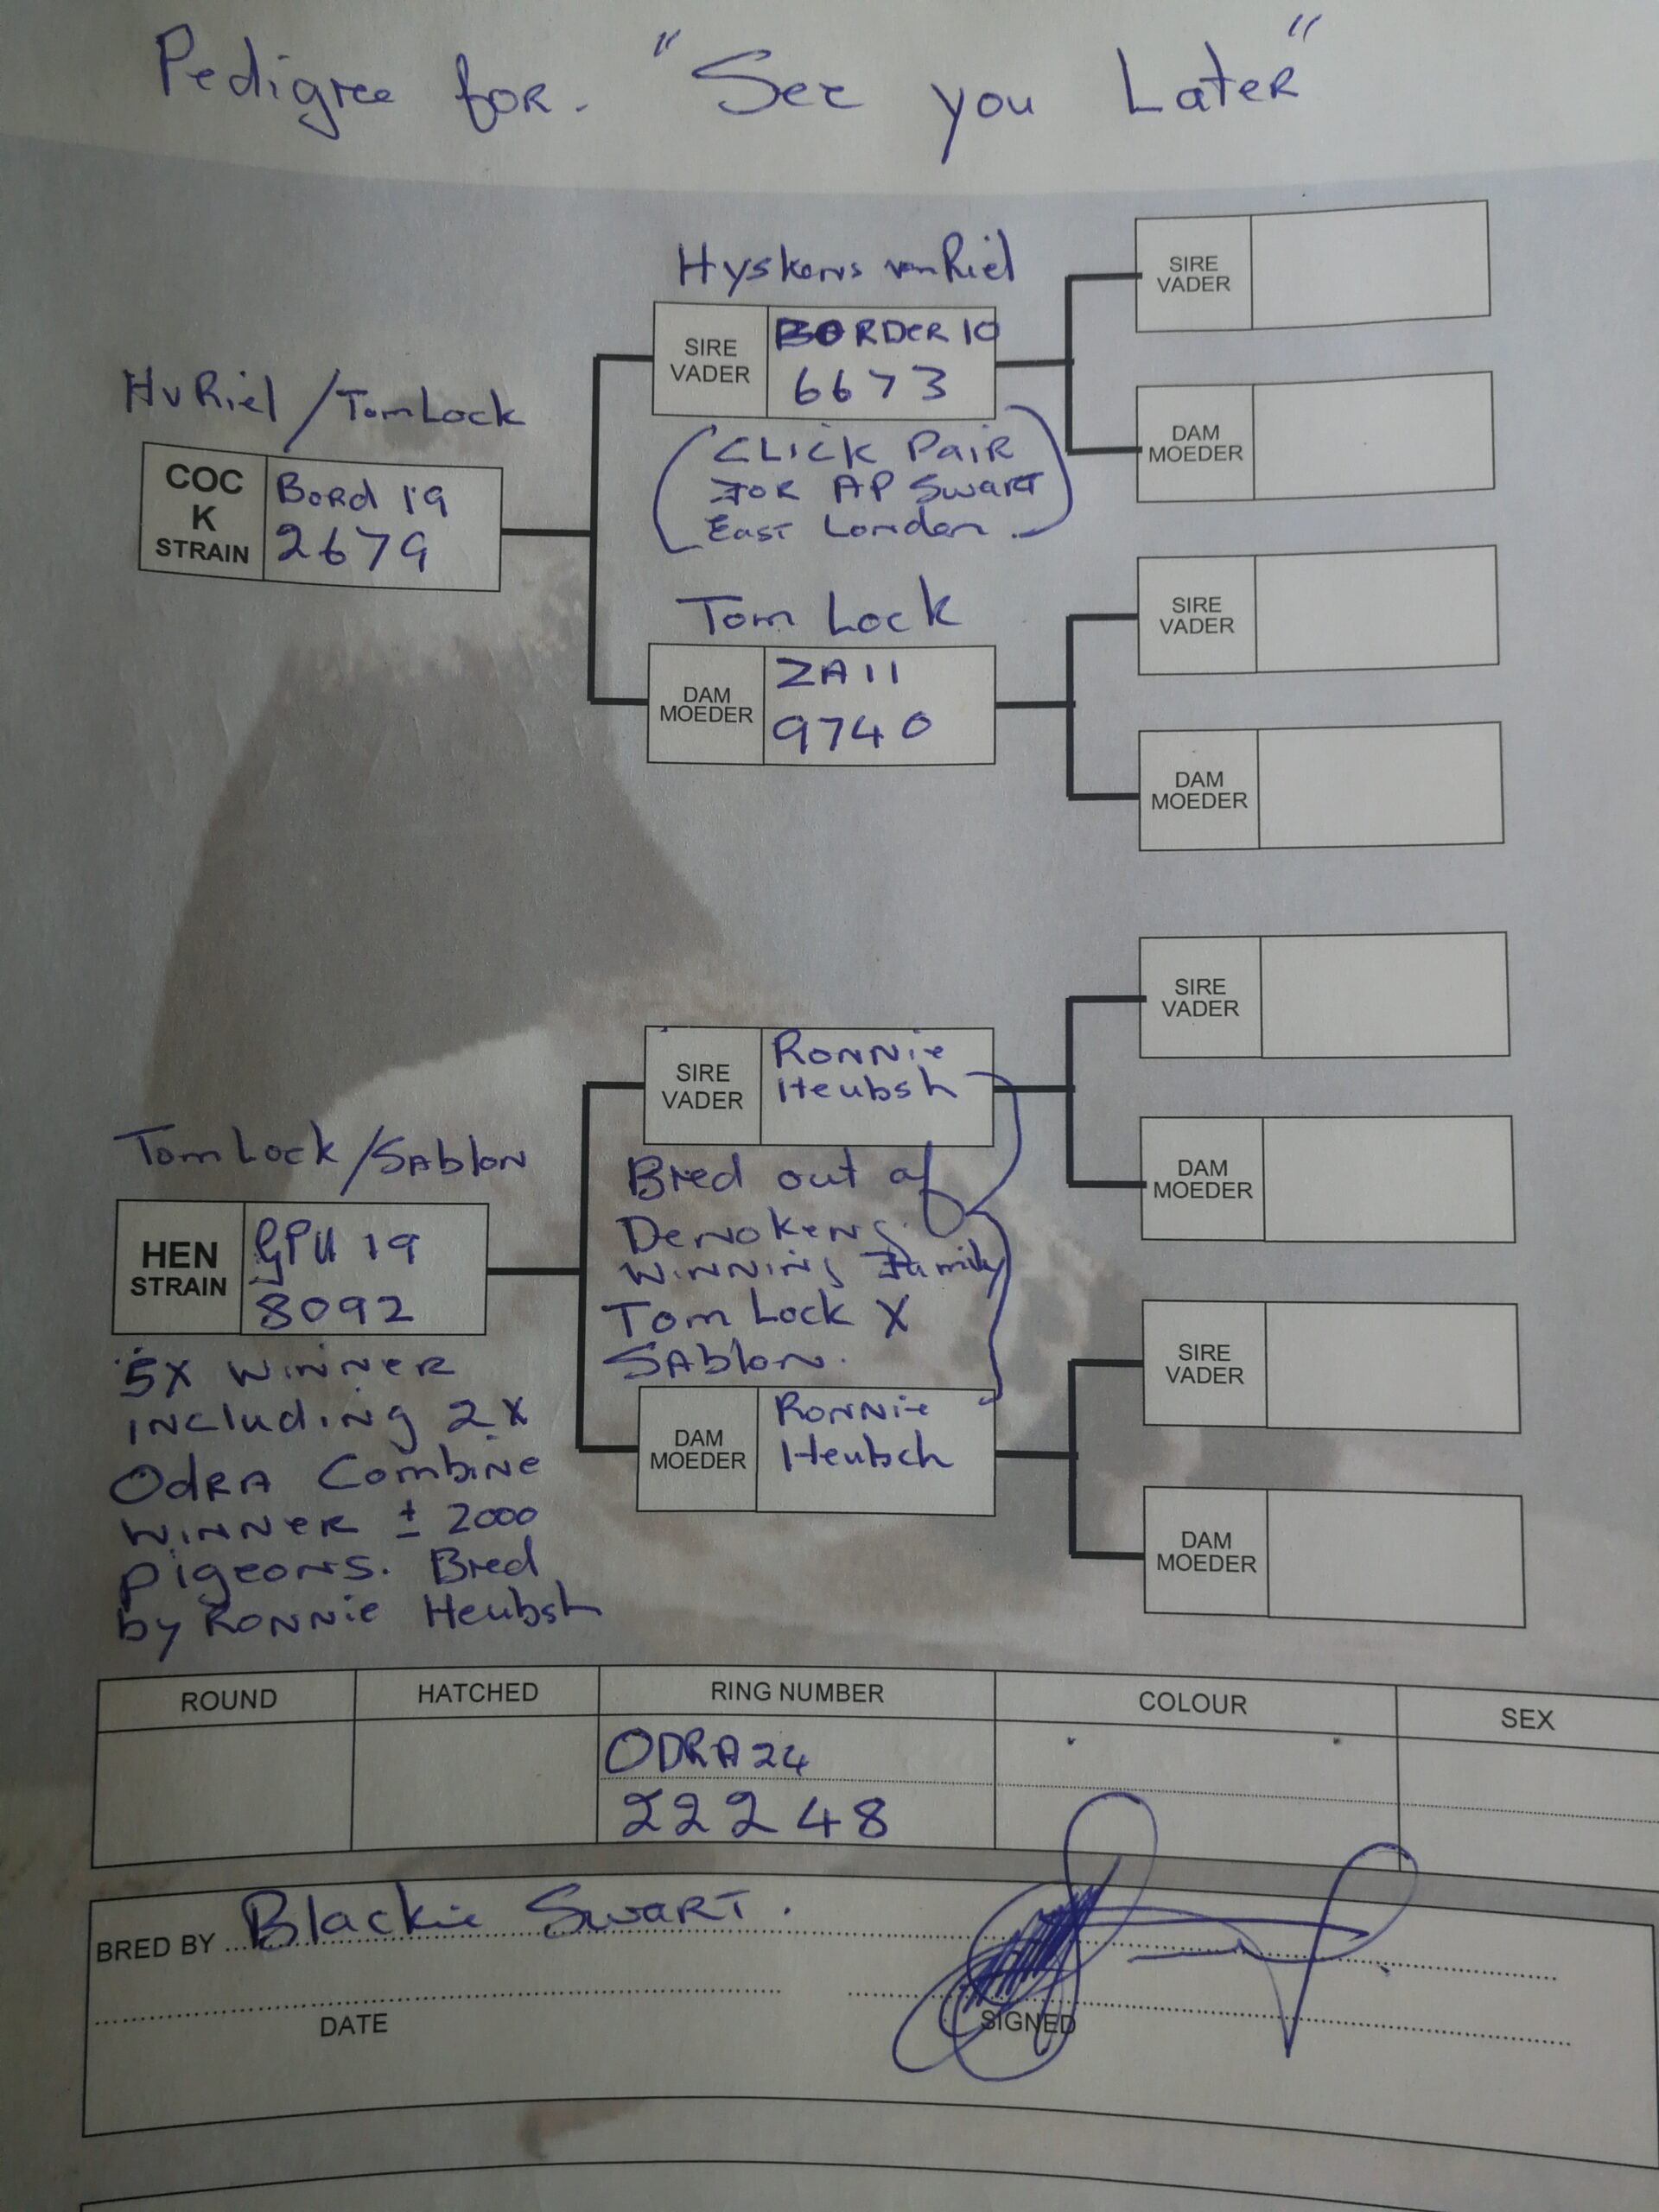 Pedigree for. "See you Later"
Hyskens van Riel
SIRE
VADER
BORDER 10
6673
SIRE
VADER
DAM
MOEDER
(CLICK PAIR
FOR AP SWART
East London.)
HvRiel / Tom Lock
COC
K
STRAIN
Bord 19
2679
Tom Lock
DAM
MOEDER
ZA 11
9740
SIRE
VADER
DAM
MOEDER
SIRE
VADER
Ronnie
Heubsh
SIRE
VADER
DAM
MOEDER
Bred out of
Denokens
Winning Family
Tom Lock X
Sablon.
Tom Lock / Sablon
HEN
STRAIN
GPU 19
8092
5X Winner
including 2X
OdRA Combine
Winner ± 2000
pigeons. Bred
by Ronnie Heubsh
DAM
MOEDER
Ronnie
Heubsch
SIRE
VADER
DAM
MOEDER
ROUND HATCHED RING NUMBER COLOUR SEX
ODRA 24
22248
BRED BY Blackie Swart.
DATE SIGNED